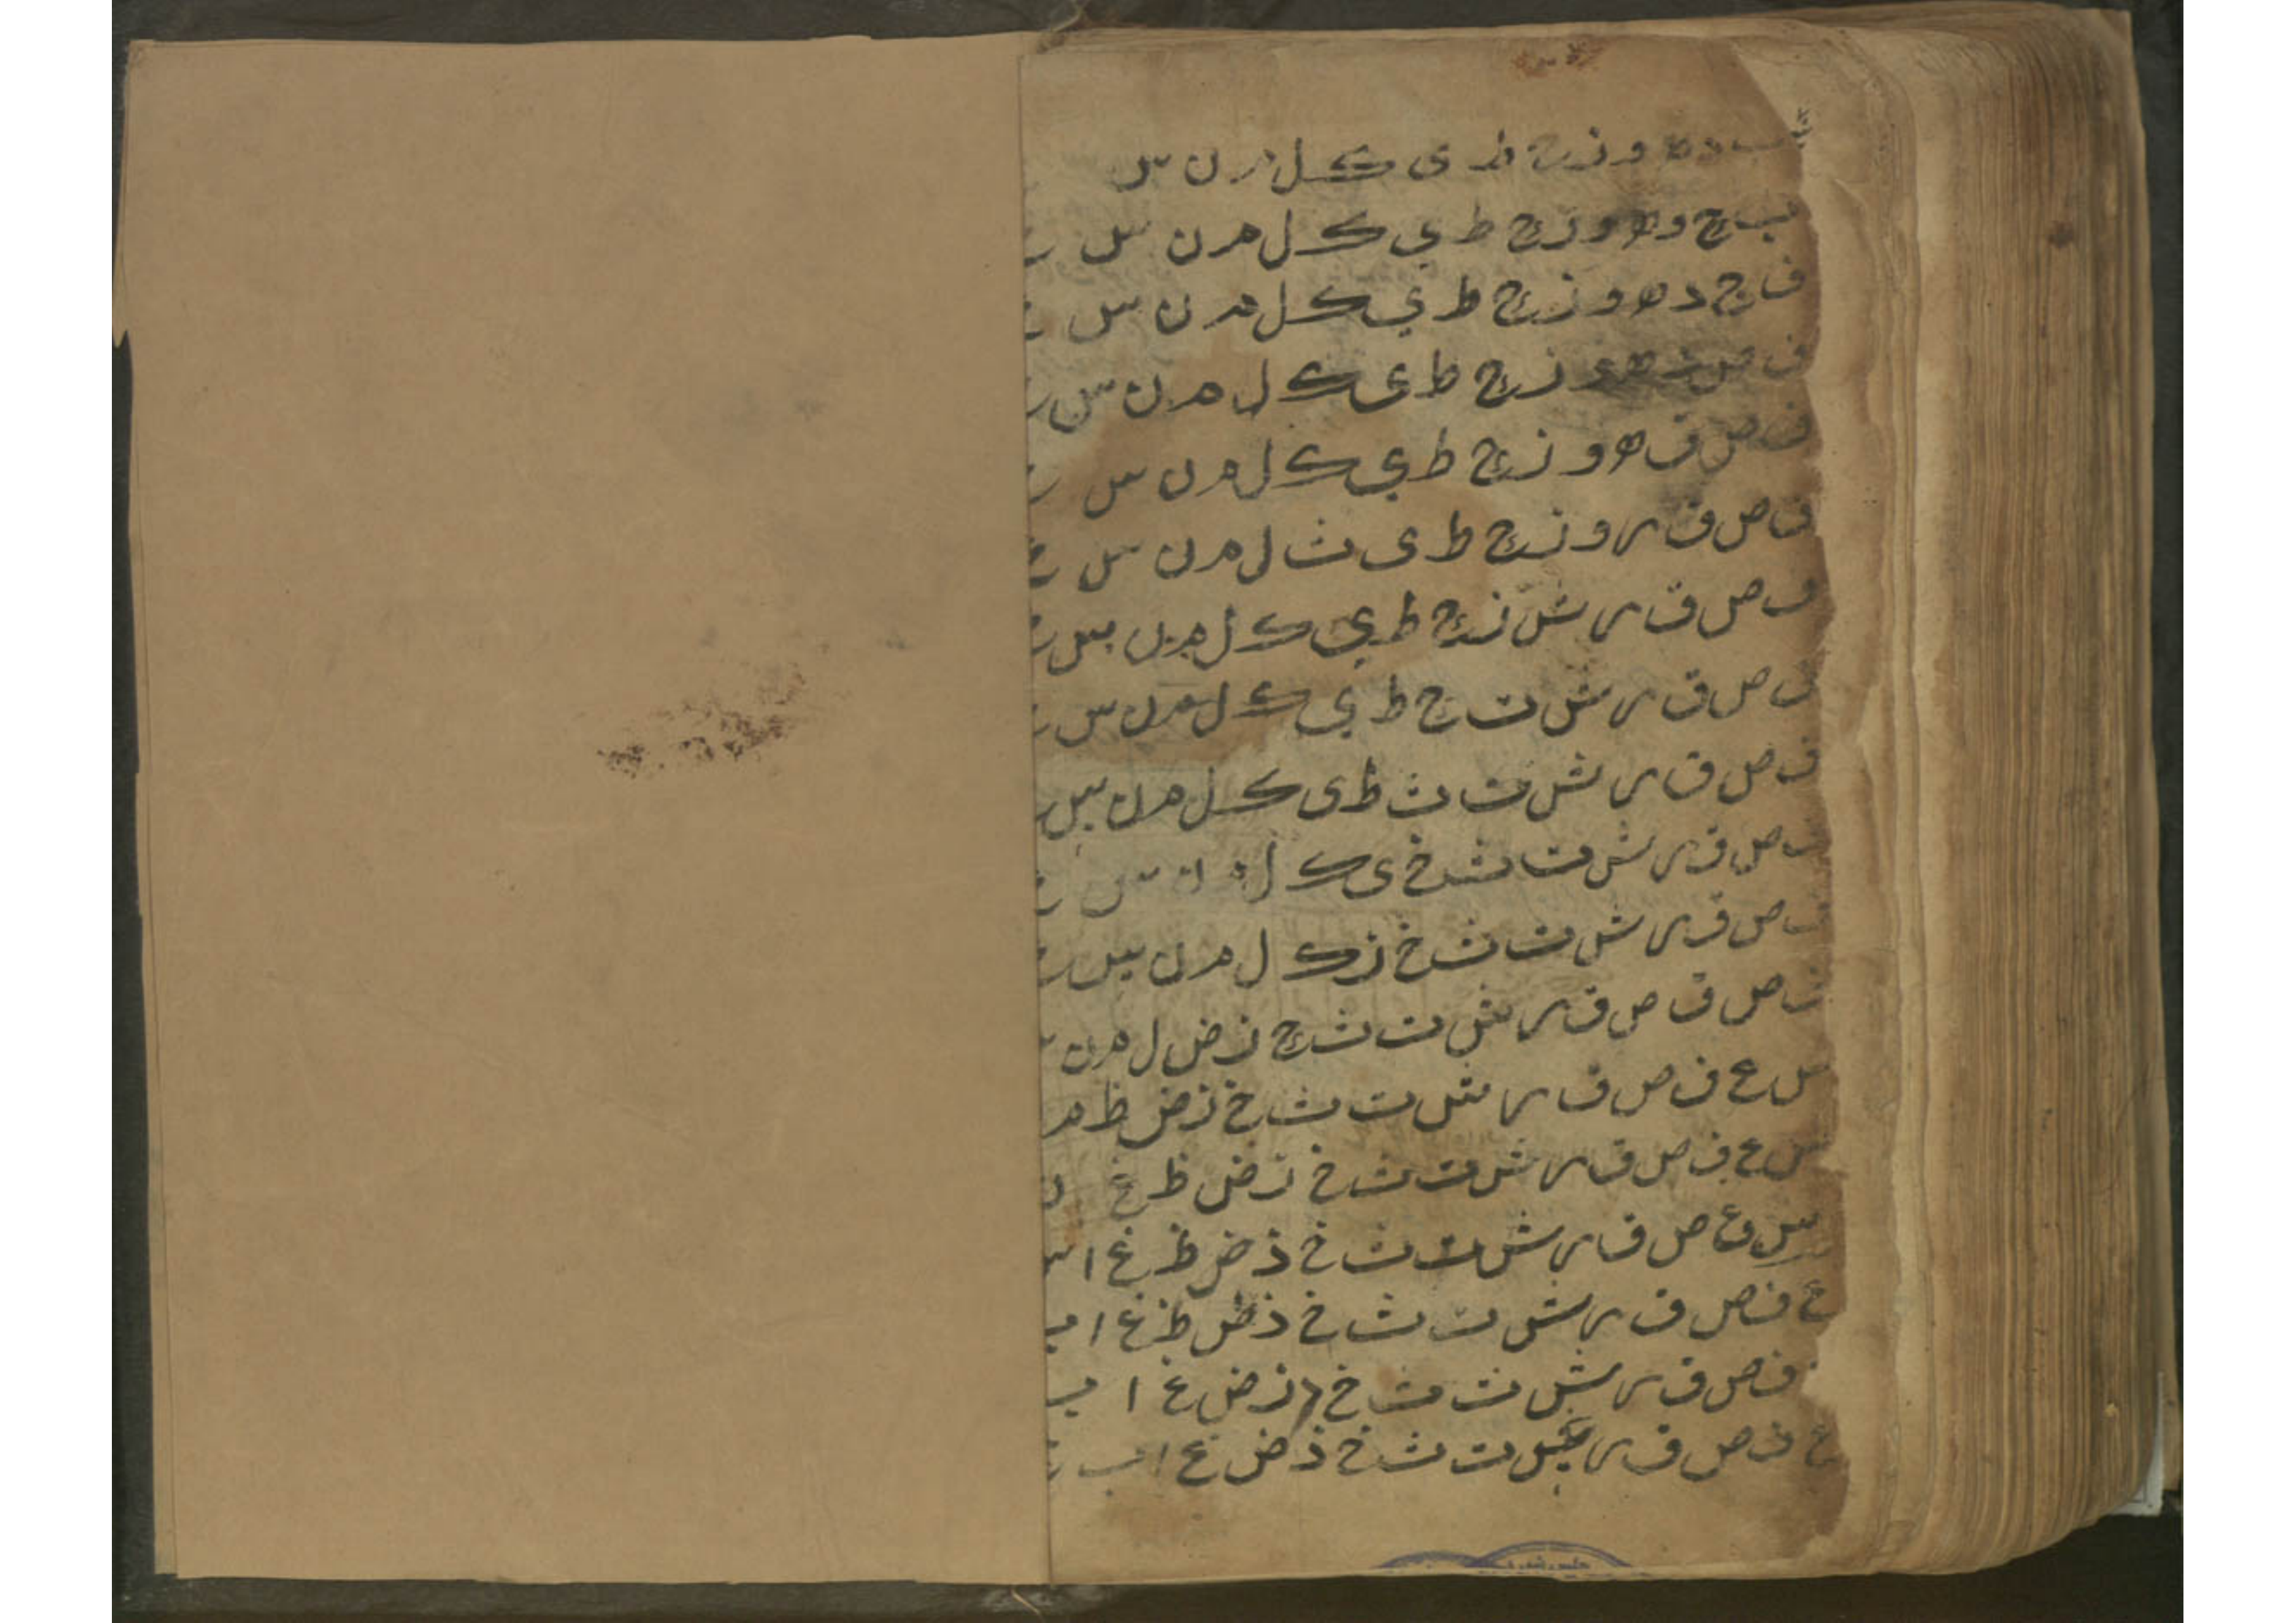 ب د ه و ز ح ط ی ک ل م ن س
ب ج د ه و ز ح ط ي ک ل م ن س ع
ف ج د ه و ز ح ط ي ک ل م ن س ع
ف ص ه و ز ح ط ی ک ل م ن س ع
ف ص ق ه و ز ح ط ي ک ل م ن س ع
ف ص ق ر و ز ح ط ی ث ل م ن س ع
ف ص ق ر ش ز ح ط ي ک ل م ن س ع
ف ص ق ر ش ت ح ط ي ک ل م ن س ع
ف ص ق ر ش ت ث ط ی ک ل م ن س ع
ف ص ق ر ش ت ث خ ی ک ل م ن س ع
ف ص ق ر ش ت ث خ ز ک ل م ن س ع
ف ص ق ص ق ر ش ت ث ح ز ض ل م ن س
س ع ف ص ق ر ش ت ث خ ز ض ظ م
س ع ف ص ق ر ش ت ث خ ز ض ظ غ ن
س ع ص ق ر ش ت ث خ ذ ض ظ غ ا س
ع ف ص ق ر ش ت ث خ ذ ض ظ غ ا ب
ف ص ق ر ش ت ث خ ز ض غ ا ب
ع ف ص ق ر ش ت ث خ ذ ض غ ا ب ج